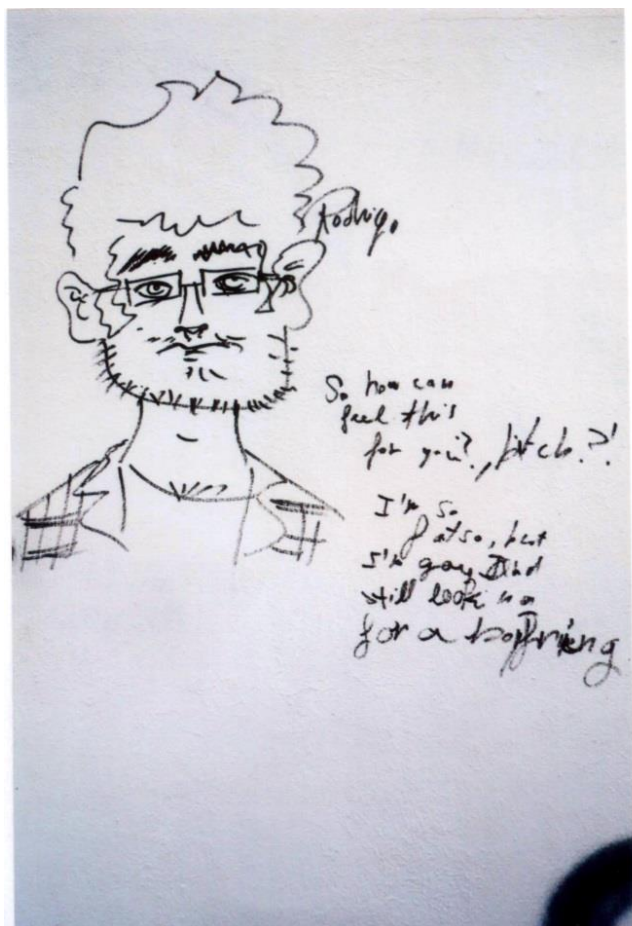 Rodrigo
So how can
feel this
for you?, bitch.?!
I'm so
fatso, but
I'm gay And
still look
for a boyfrieng